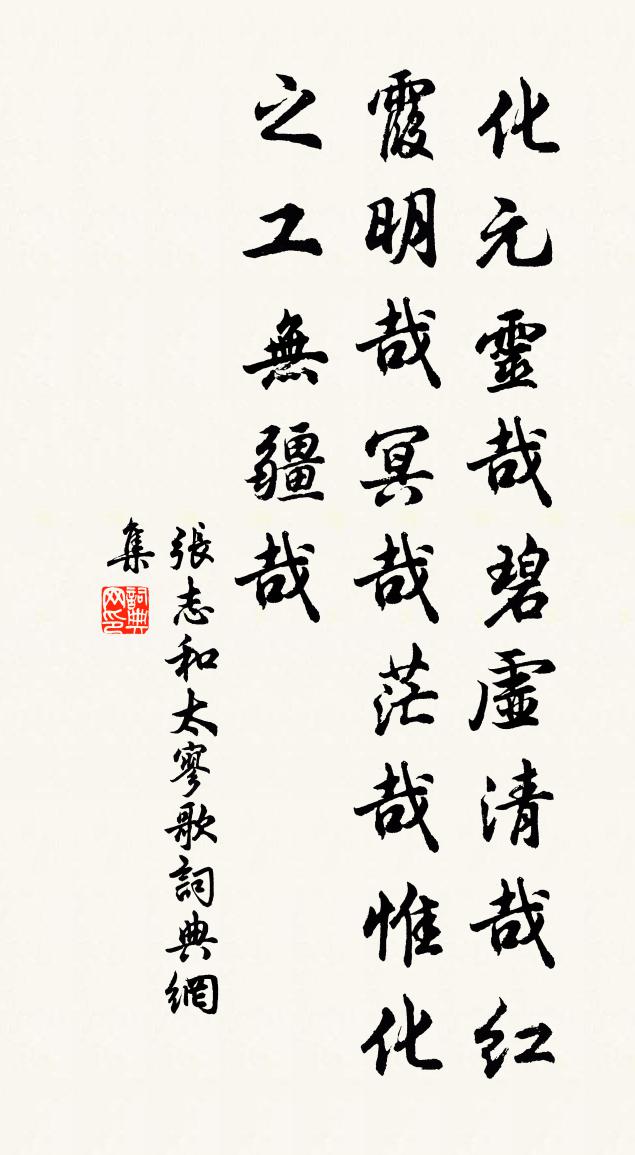 化元靈哉碧虛清哉紅
霞明哉冥哉茫哉惟化
之工無疆哉
張志和太寥歌詞典網
集
詞典
网印